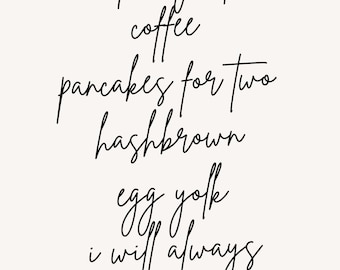 coffee
pancakes for two
hashbrown
egg yolk
i will always